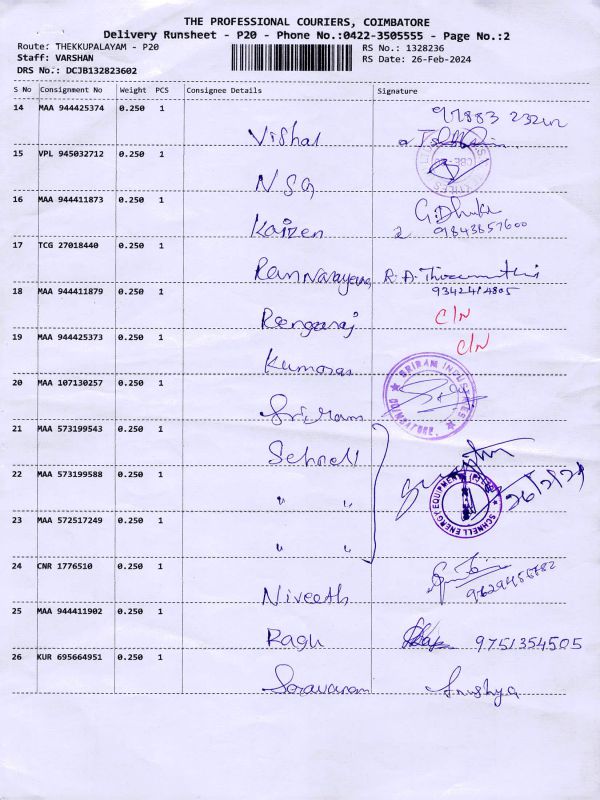 THE PROFESSIONAL COURIERS, COIMBATORE
Delivery Runsheet - P20 - Phone No.:0422-3505555 - Page No.:2
Route: THEKKUPALAYAM - P20
RS No.: 1328236
Staff: VARSHAN
RS Date: 26-Feb-2024
DRS No.: DCJB132823602
S No Consignment No Weight PCS Consignee Details Signature
14 MAA 944425374 0.250 1
Vishal
15 VPL 945032712 0.250 1
NSG
16 MAA 944411873 0.250 1
G. Dhuke
Kaizen 9843657600
17 TCG 27018440 0.250 1
18 MAA 944411879 0.250 1
C/N
Rengaraj
19 MAA 944425373 0.250 1
C/N
Kumaran
20 MAA 107130257 0.250 1
SRIRAM INDUSTRIES
COIMBATORE
Sri Ram
21 MAA 573199543 0.250 1
Schnell
22 MAA 573199588 0.250 1
" "
26/2/24
SCHNELL ENERGY EQUIPMENT (P) LTD
23 MAA 572517249 0.250 1
" "
24 CNR 1776510 0.250 1
Niveeth
25 MAA 944411902 0.250 1
Ragu 9751354505
26 KUR 695664951 0.250 1
Saravanan Anushya